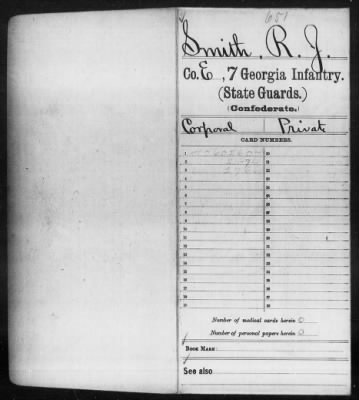 651
Smith, R. J.
Co. E, 7 Georgia Infantry.
(State Guards.)
(Confederate.)
Corporal Private
CARD NUMBERS.
1 20
2 21
3 22
4 23
5 24
6 25
7 26
8 27
9 28
10 29
11 30
12 31
13 32
14 33
15 34
16 35
17 36
18 37
19 38
Number of medical cards herein 0
Number of personal papers herein 0
BOOK MARK:
See also